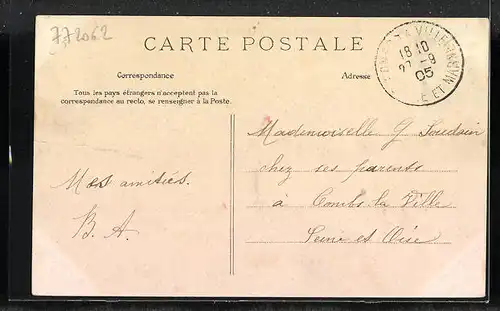 772062
CARTE POSTALE
Correspondance
Tous les pays étrangers n'acceptent pas la
correspondance au recto, se renseigner à la Poste.
Mes amitiés.
B. A.
Adresse
18 10
9
05
ET MARNE
Mademoiselle G
chez ses parents
à Combs la Ville
Seine et Oise